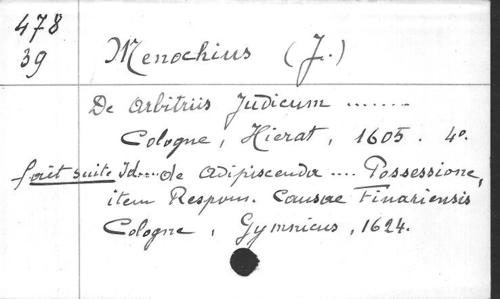 478
39 Menochius (J.)
De Arbitriis Judicum .......
Cologne, Hierat, 1605. 4o.
fait suite Id.... de Adipiscenda .... Possessione,
item Respons. Causae Finariensis
Cologne, Gymnicus, 1624.